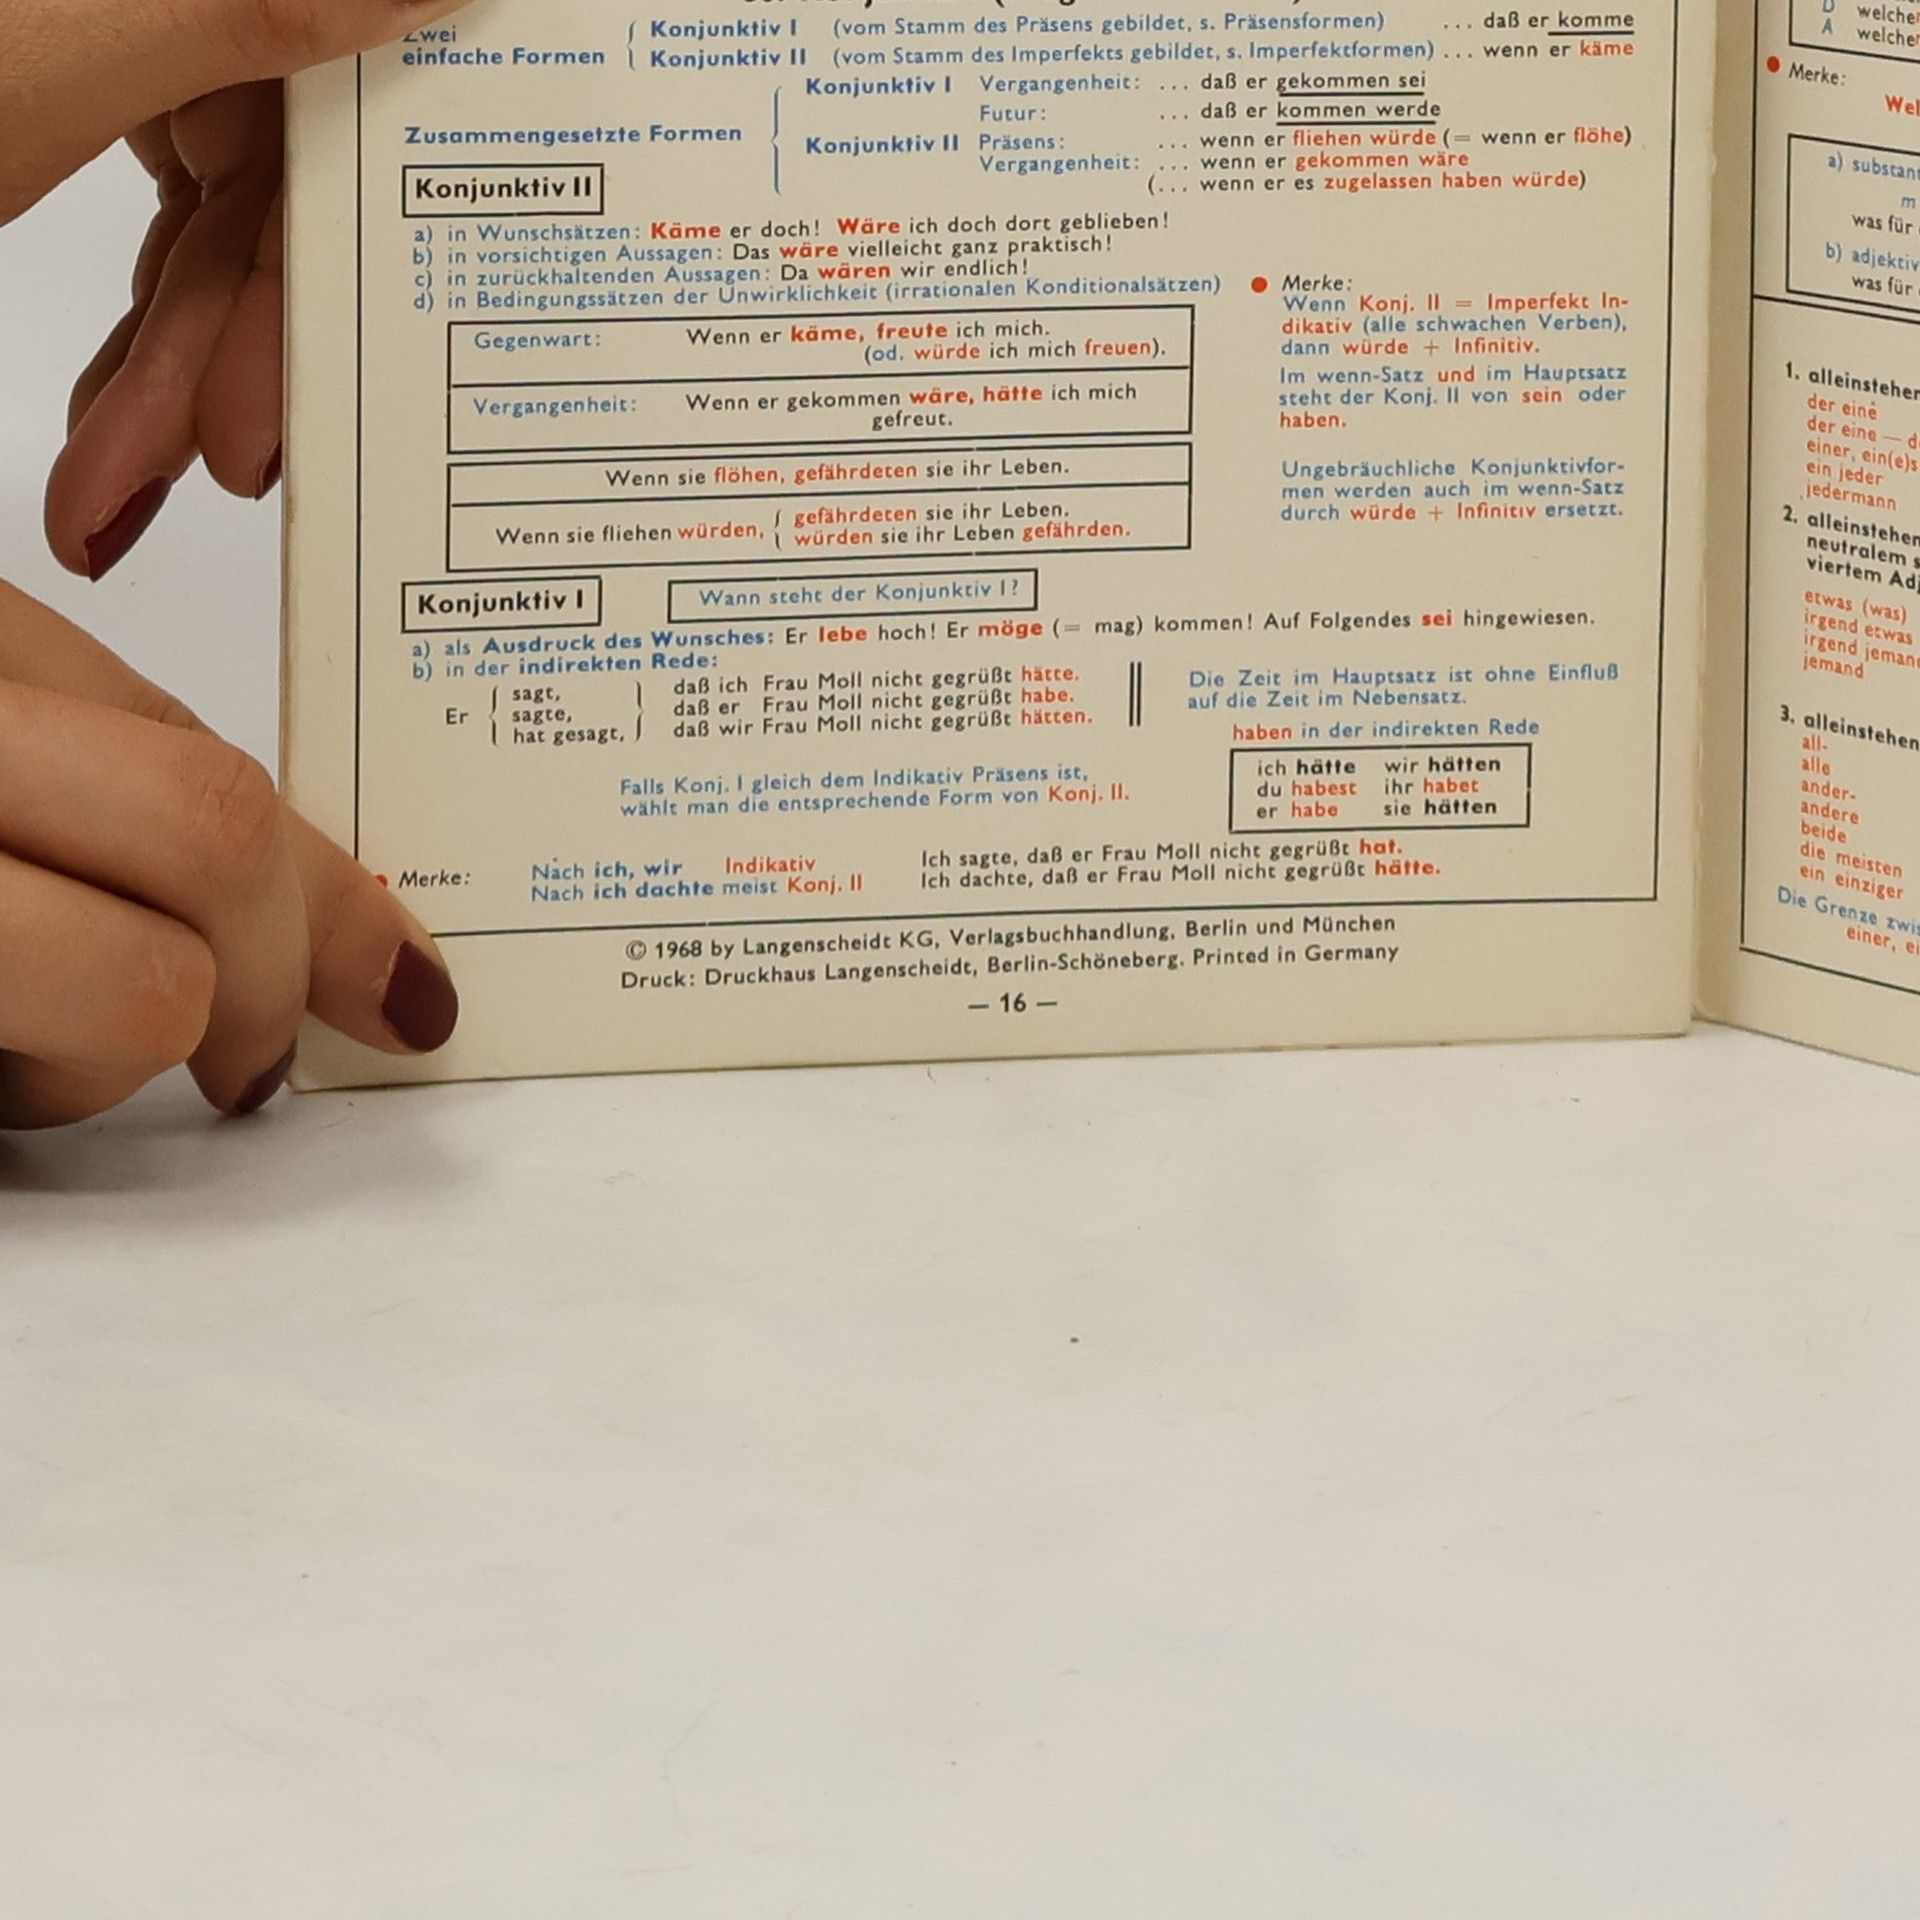 Zwei
einfache Formen
Konjunktiv I (vom Stamm des Präsens gebildet, s. Präsensformen) ... daß er komme
Konjunktiv II (vom Stamm des Imperfekts gebildet, s. Imperfektformen) ... wenn er käme
Zusammengesetzte Formen
Konjunktiv I Vergangenheit: ... daß er gekommen sei
Futur: ... daß er kommen werde
Konjunktiv II Präsens: ... wenn er fliehen würde (= wenn er flöhe)
Vergangenheit: ... wenn er gekommen wäre
(... wenn er es zugelassen haben würde)
Konjunktiv II
a) in Wunschsätzen: Käme er doch! Wäre ich doch dort geblieben!
b) in vorsichtigen Aussagen: Das wäre vielleicht ganz praktisch!
c) in zurückhaltenden Aussagen: Da wären wir endlich!
d) in Bedingungssätzen der Unwirklichkeit (irrationalen Konditionalsätzen)
Gegenwart: Wenn er käme, freute ich mich.
(od. würde ich mich freuen).
Vergangenheit: Wenn er gekommen wäre, hätte ich mich
gefreut.
Wenn sie flöhen, gefährdeten sie ihr Leben.
Wenn sie fliehen würden,
gefährdeten sie ihr Leben.
würden sie ihr Leben gefährden.
Merke:
Wenn Konj. II = Imperfekt In-
dikativ (alle schwachen Verben),
dann würde + Infinitiv.
Im wenn-Satz und im Hauptsatz
steht der Konj. II von sein oder
haben.
Ungebräuchliche Konjunktivfor-
men werden auch im wenn-Satz
durch würde + Infinitiv ersetzt.
Konjunktiv I
Wann steht der Konjunktiv I?
a) als Ausdruck des Wunsches: Er lebe hoch! Er möge (= mag) kommen! Auf Folgendes sei hingewiesen.
b) in der indirekten Rede:
Er
sagt,
sagte,
hat gesagt,
daß ich Frau Moll nicht gegrüßt hätte.
daß er Frau Moll nicht gegrüßt habe.
daß wir Frau Moll nicht gegrüßt hätten.
Die Zeit im Hauptsatz ist ohne Einfluß
auf die Zeit im Nebensatz.
Falls Konj. I gleich dem Indikativ Präsens ist,
wählt man die entsprechende Form von Konj. II.
haben in der indirekten Rede
ich hätte wir hätten
du habest ihr habet
er habe sie hätten
Merke:
Nach ich, wir Indikativ
Nach ich dachte meist Konj. II
Ich sagte, daß er Frau Moll nicht gegrüßt hat.
Ich dachte, daß er Frau Moll nicht gegrüßt hätte.
© 1968 by Langenscheidt KG, Verlagsbuchhandlung, Berlin und München
Druck: Druckhaus Langenscheidt, Berlin-Schöneberg. Printed in Germany
— 16 —
D
A
Merke:
a) substant
m
was für
b) adjektiv
was für
1. alleinstehen
der eine
der eine —
einer, ein(e)s
ein jeder
jedermann
2. alleinstehen
neutralem s
viertem Adj
etwas (was)
irgend etwas
irgend jemand
jemand
3. alleinstehen
all-
alle
ander-
andere
beide
die meisten
ein einziger
Die Grenze zwis
einer,